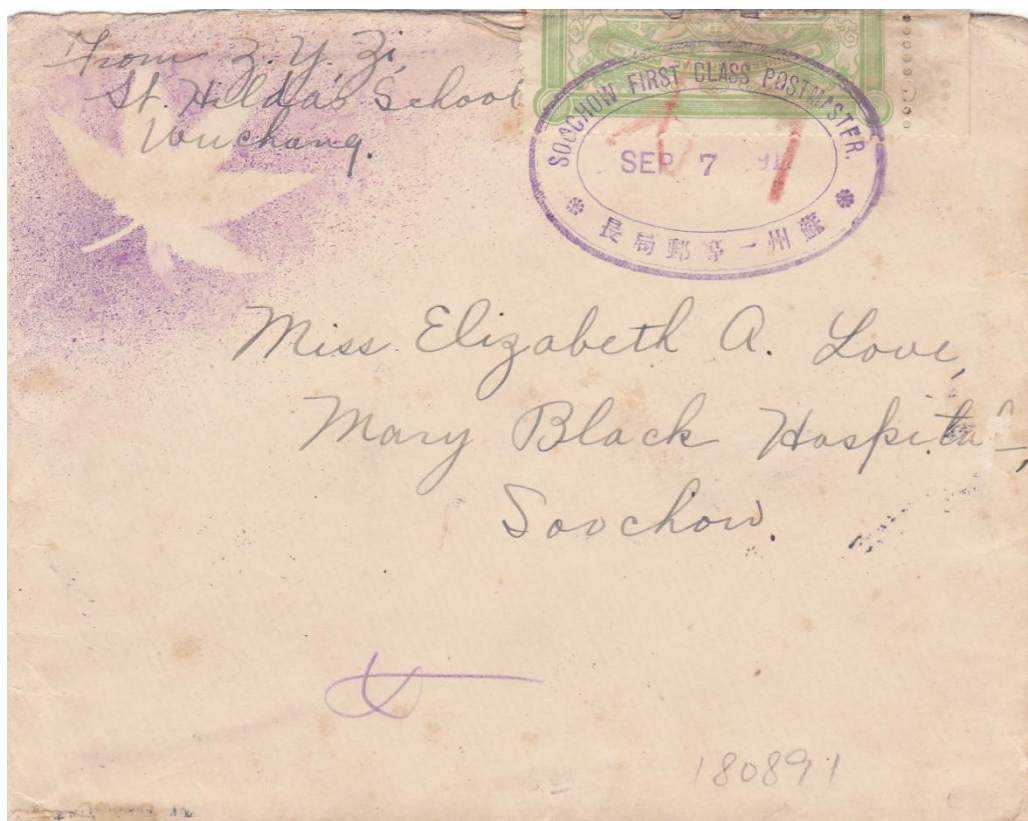 From Z. Y. Zi,
St. Hilda's School
Wuchang.
SOOCHOW FIRST CLASS POSTMASTER.
SEP 7
蘇州一等郵局長
Miss Elizabeth A. Love,
Mary Black Hospital,
Soochow.
180891